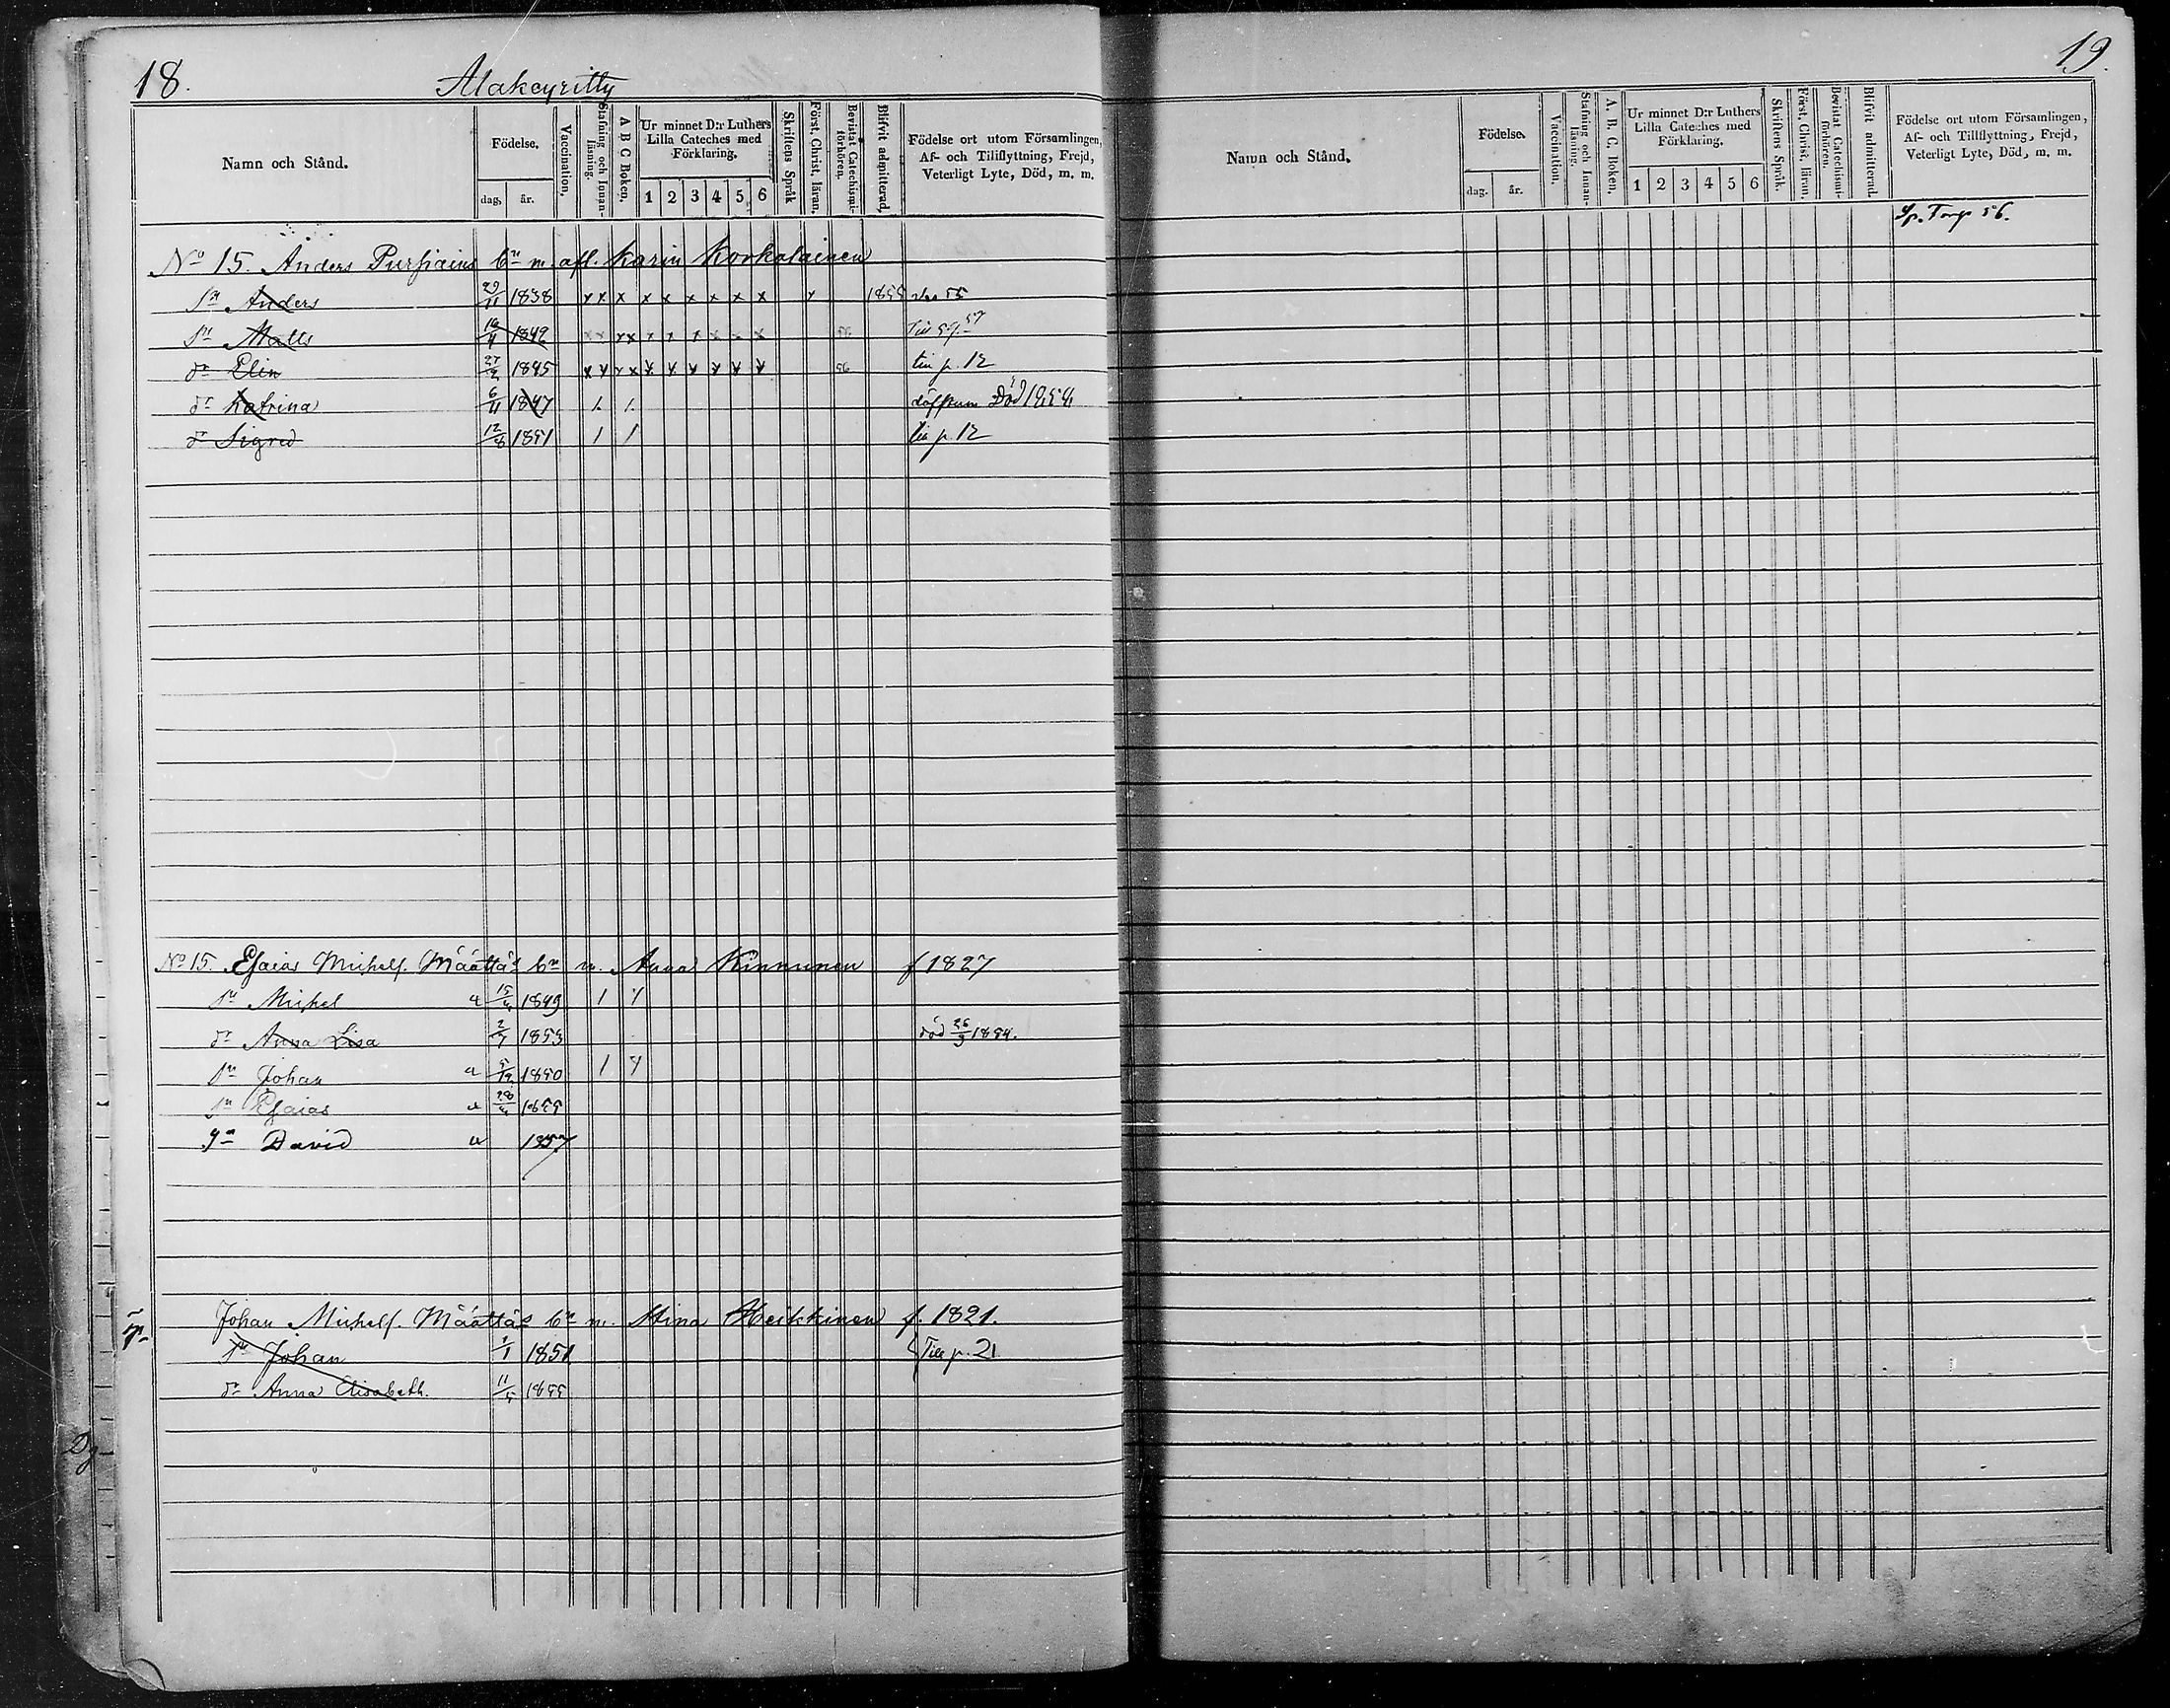 18.
Alakeyritty
Namn och Stånd.
Födelse.
dag, år.
Vaccination.
Stafning och Innan-läsning.
A B C Boken.
Ur minnet D:r Luthers Lilla Cateches med Förklaring.
1 2 3 4 5 6
Skriftens Språk
Först. Christ. läran.
Bevistat Catechismi-förhören.
Blifvit admitterad.
Födelse ort utom Församlingen,
Af- och Tillflyttning, Frejd,
Veterligt Lyte, Död, m. m.
No 15. Anders Pursiains bn m. afl. Karin Korkalainen
sn Anders 29/11 1838 x x x x x x x x x x 1855
sn Matts 1842
dr Elin 27/2 1845 x x x x x x x x x x 56 till p. 12
dr Katrina 6/11 1847 1 1 Död
dr Sigred 12/8 1851 1 1 till p. 12
No 15. Esaias Michelss. Määttäs bn m. Anna Kinnunen f 1827
sn Michel 1849 1
dr Anna Lisa 1853 död 26/9 1854.
sn Johan 1850 1
sn Esaias 1855
sn David 1857
Johan Michelss. Määttäs bn m. Stina Heikkinen f. 1821.
sn Johan 1/1 1851 Till p. 21
dr Anna Elisabeth. 1855
19.
Namn och Stånd.
Födelse.
dag. år.
Vaccination.
Stafning och Innan-läsning.
A. B. C. Boken.
Ur minnet D:r Luthers Lilla Cateches med Förklaring.
1 2 3 4 5 6
Skriftens Språk.
Först. Christ. läran.
Bevistat Catechismi-förhören.
Blifvit admitterad.
Födelse ort utom Församlingen,
Af- och Tillflyttning, Frejd,
Veterligt Lyte, Död, m. m.
56.